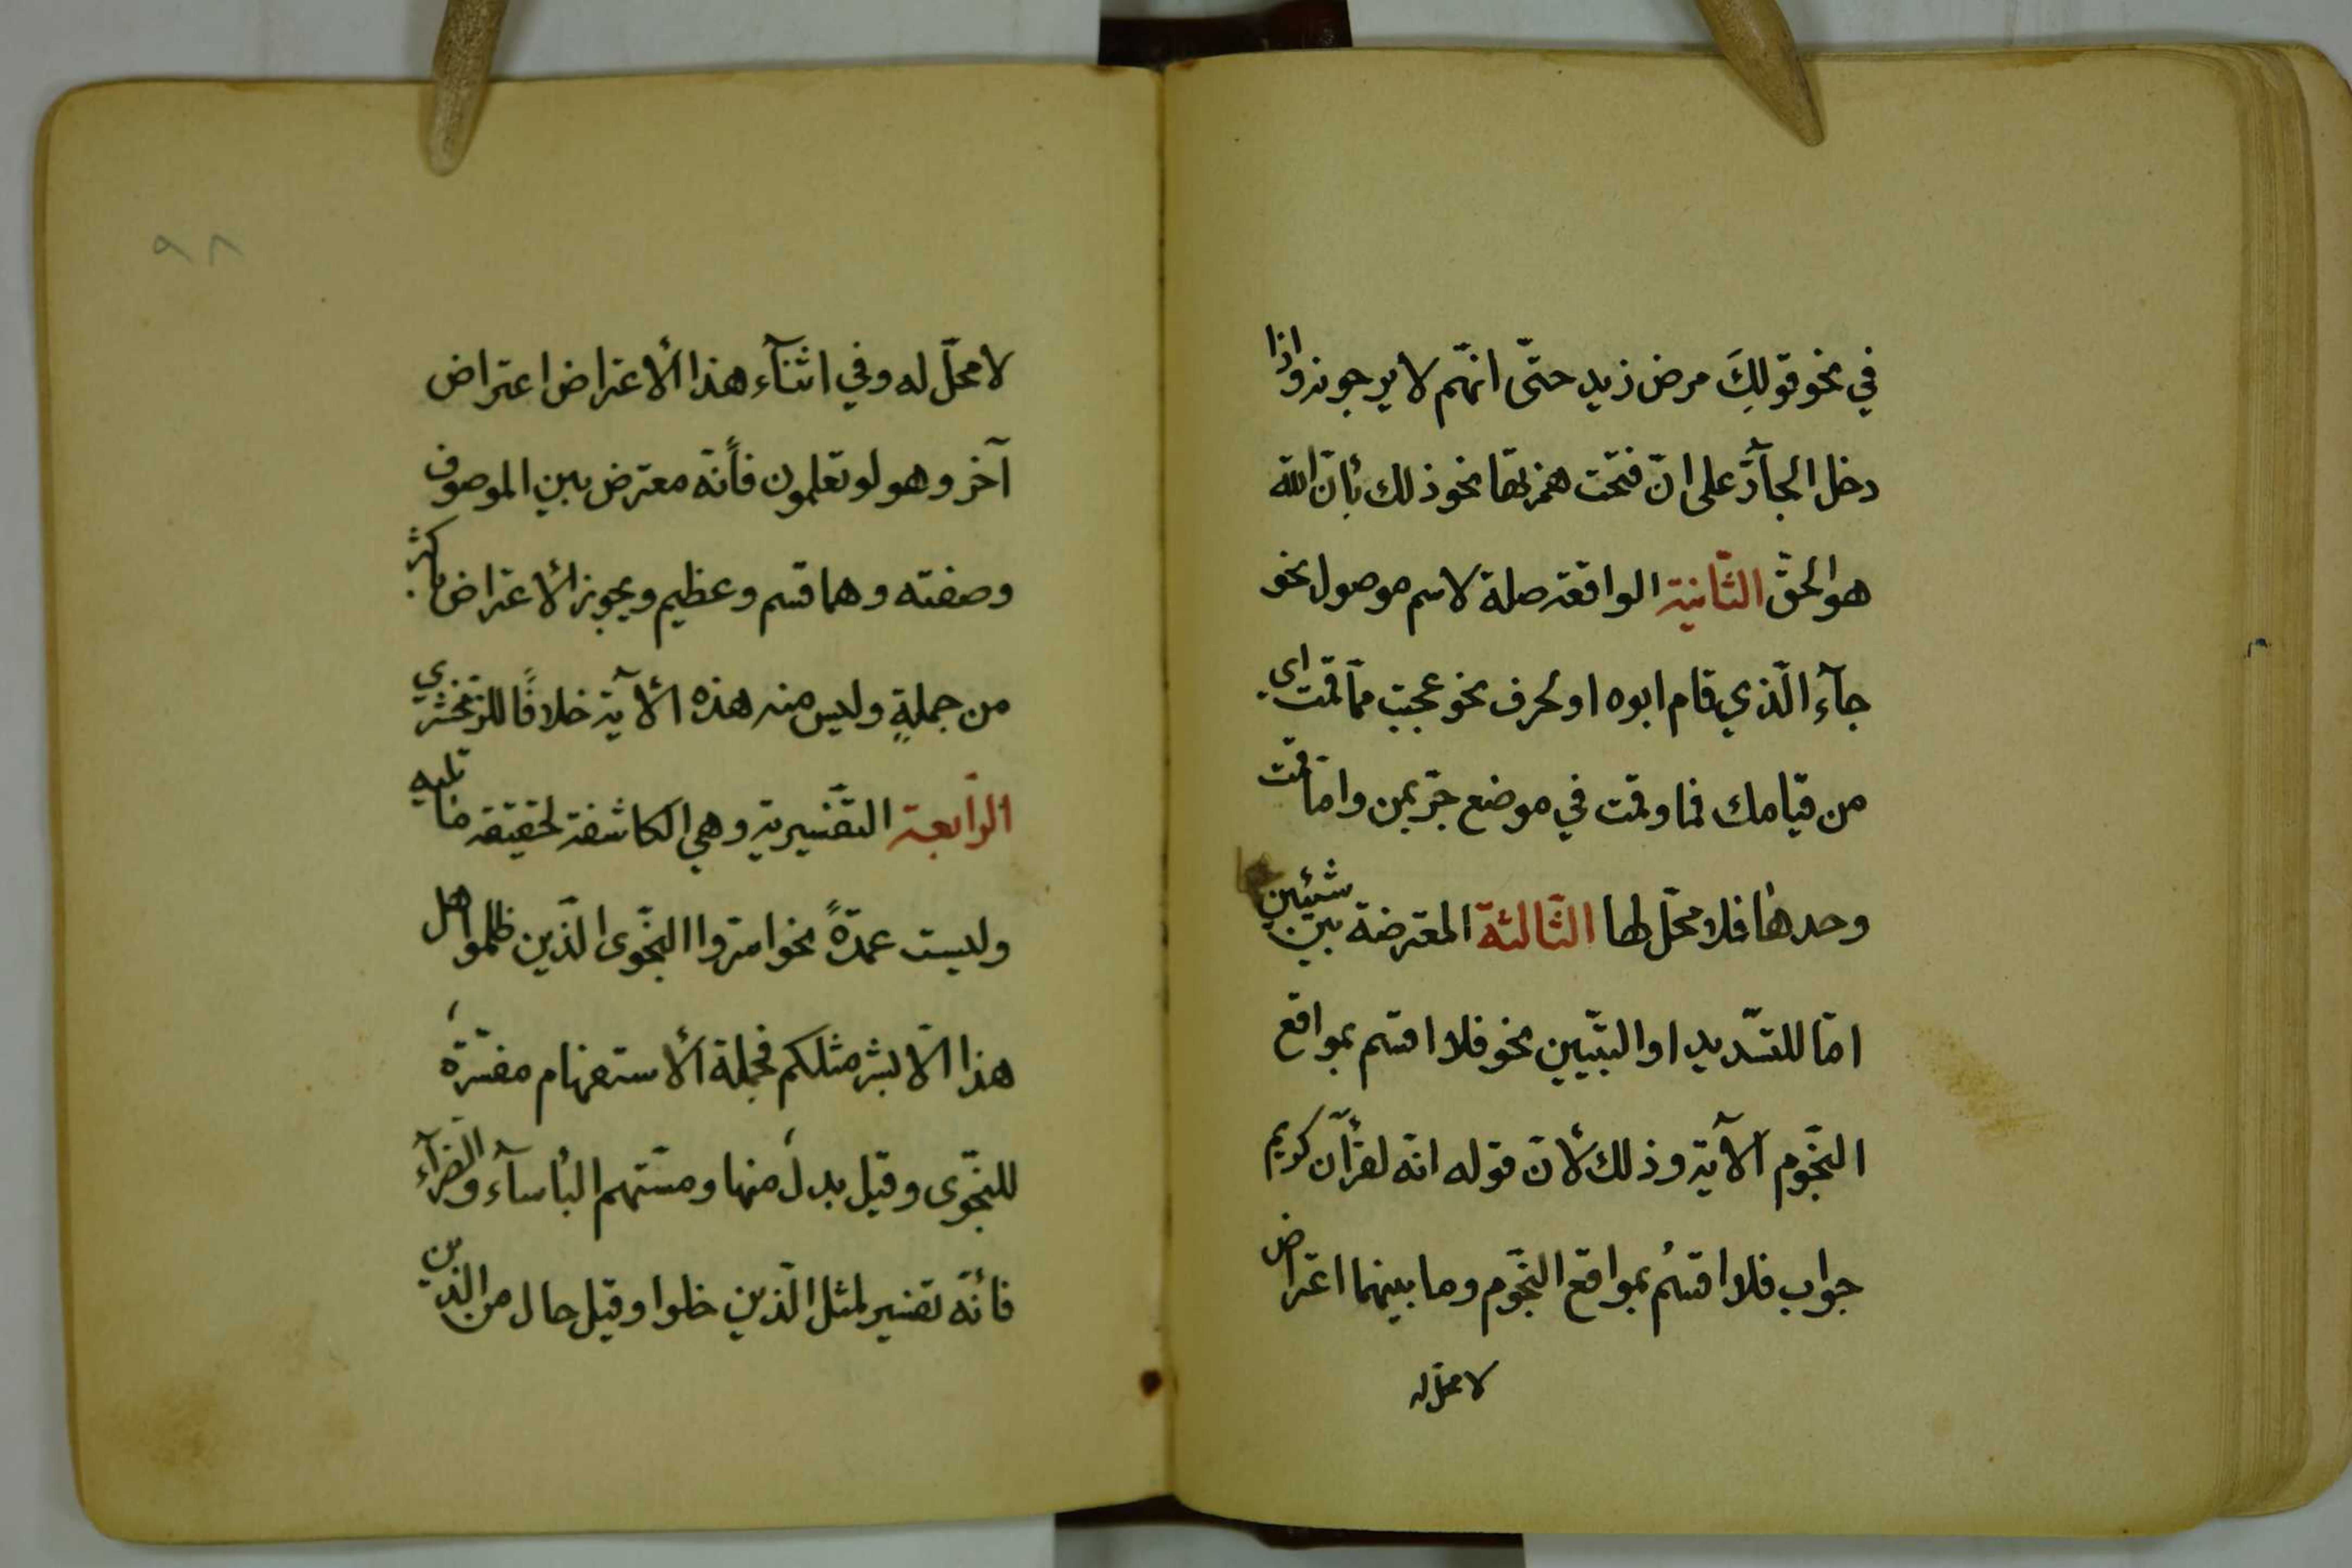 في نحو قولك مرض زيد حتّى انهّم لا يرجونه واذا
دخل الجآرّ على انّ فتحت همزتها نحو ذلك بأنّ الله
هو الحقّ الثّانية الواقعة صلة لاسم موصول نحو
جآء الّذي قام ابوه او لحرف نحو عجبت ممّا قمت اى
من قيامك فما وقمت في موضع جرّ بمن وامّا قمت
وحدها فلا محلّ لها الثّالثة المعترضة بين شيئين
امّا للتسّديد او التبّيين نحو فلا اقسم بمواقع
النجّوم الآية وذلك لأنّ قوله انّه لقرأآن كريم
جواب فلا اقسمُ بمواقع النجّوم وما بينهما اعتراض
لا محلّ له
٩٨
لا محلّ له وفي اثنآء هذا الأعتراض اعتراض
آخر وهو لو تعلمون فأنّه معترض بين الموصوف
وصفته وهما قسم وعظيم ويجوز الأعتراض باكثر
من جملةٍ وليس منه هذه الأآية خلافًا للزّمخشري
الرّابعة التفّسيرية وهي الكاشفة لحقيقة ما تليه
وليست عمدّةً نحو اسرّوا النجّوى الّذين ظلموا هل
هذا الّا بشر مثلكم فجملة الأستفهام مفسّرة
للنجّوى وقيل بدل منها ومسّتهم البأسآء والضّرآء
فأنّه تفسير لمثل الّذين خلوا وقيل حال من الّذين